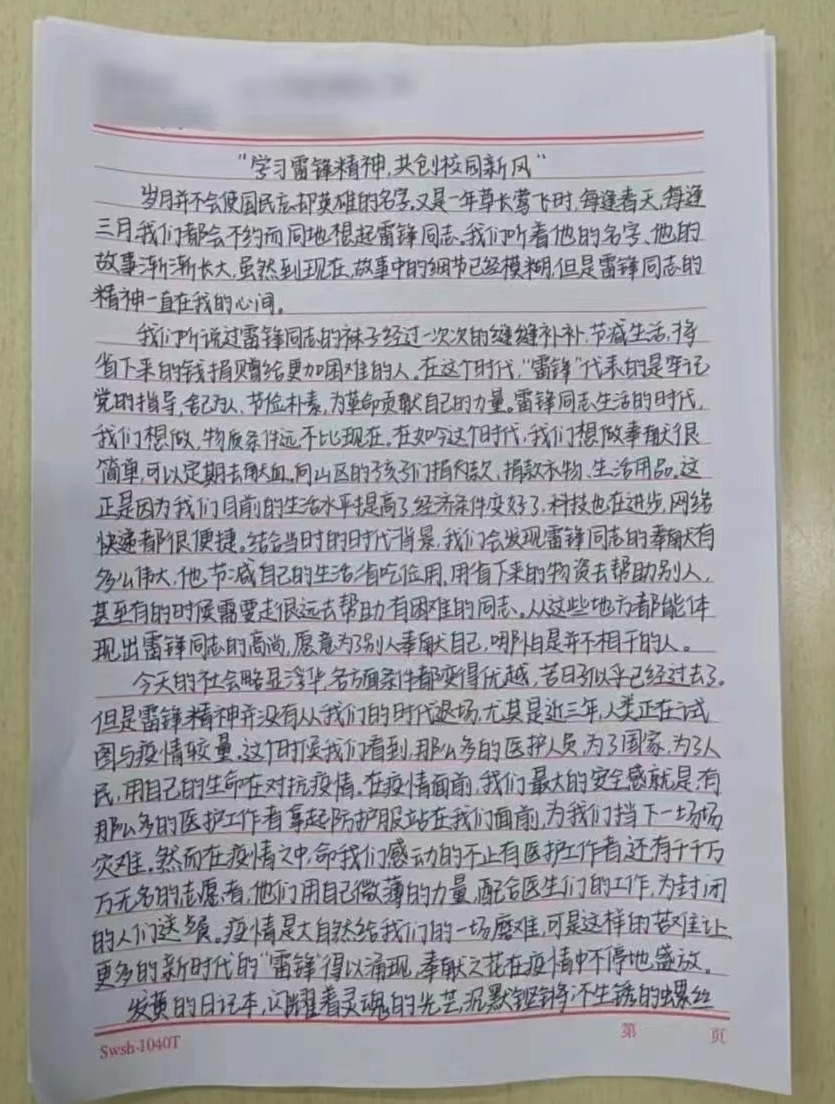 “学习雷锋精神,共创校园新风”
岁月并不会使国民忘却英雄的名字。又是一年草长莺飞时,每逢春天,每逢
三月,我们都会不约而同地想起雷锋同志。我们听着他的名字、他的
故事渐渐长大,虽然到现在,故事中的细节已经模糊,但是雷锋同志的
精神一直在我的心间。
我们听说过雷锋同志的袜子经过一次次的缝缝补补,节减生活,将
省下来的钱捐赠给更加困难的人。在这个时代,“雷锋”代表的是牢记
党的指导,舍己为人、节俭朴素,为革命贡献自己的力量。雷锋同志生活的时代,
我们想做,物质条件远不比现在。在如今这个时代,我们想做奉献很
简单,可以定期去献血。向山区的孩子们捐款,捐款衣物、生活用品。这
正是因为我们目前的生活水平提高了,经济条件变好了,科技也在进步,网络
快递都很便捷。结合当时的时代背景,我们会发现雷锋同志的奉献有
多么伟大,他节减自己的生活,省吃俭用,用省下来的物资去帮助别人,
甚至有的时候需要走很远去帮助有困难的同志。从这些地方都能体
现出雷锋同志的高尚,愿意为了别人奉献自己,哪怕是并不相干的人。
今天的社会略显浮华,各方面条件都变得优越,苦日子似乎已经过去了。
但是雷锋精神并没有从我们的时代退场,尤其是近三年,人类正在试
图与疫情较量,这个时候我们看到,那么多的医护人员,为了国家,为了人
民,用自己的生命在对抗疫情。在疫情面前,我们最大的安全感就是,有
那么多的医护工作者拿起防护服站在我们面前,为我们挡下一场场
灾难。然而在疫情之中,令我们感动的不止有医护工作者,还有千千万
万无名的志愿者,他们用自己微薄的力量,配合医生们的工作,为封闭
的人们送餐。疫情是大自然给我们的一场磨难,可是这样的苦难让
更多的新时代的“雷锋”得以涌现,奉献之花在疫情中不停地盛放。
发黄的日记本,闪耀着灵魂的光芒,沉默铿锵,不生锈的螺丝
Swsh-1040T 第 页